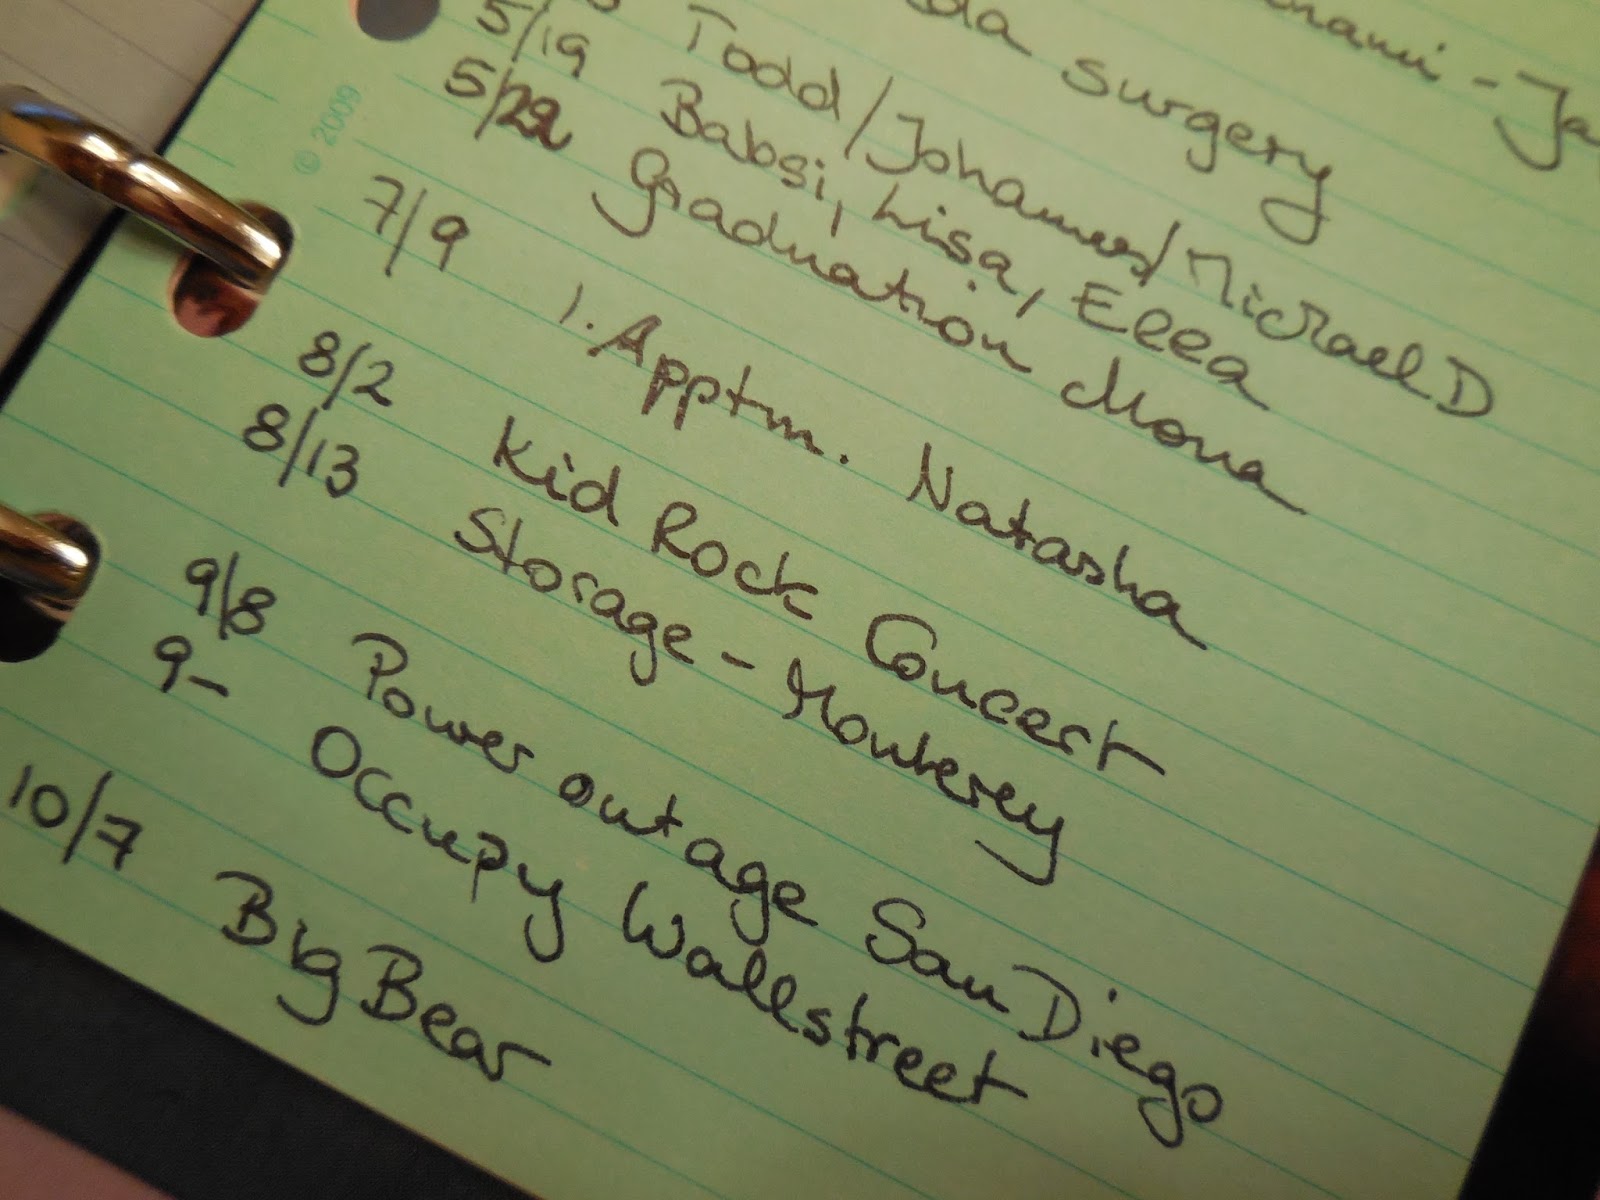 surgery
Todd/Johannes/Michael D
5/19 Babsi, Lisa, Ella
5/22 Graduation Mona
7/9 1. Apptm. Natasha
8/2 Kid Rock Concert
8/13 Storage - Monterey
9/8 Power outage San Diego
9- Occupy Wallstreet
10/7 Big Bear
© 2009